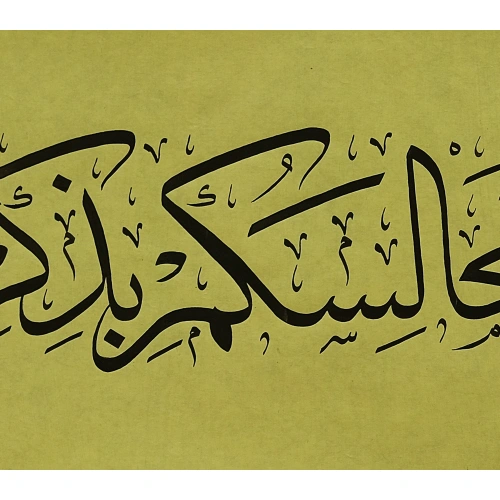 مجالسكم بذكر